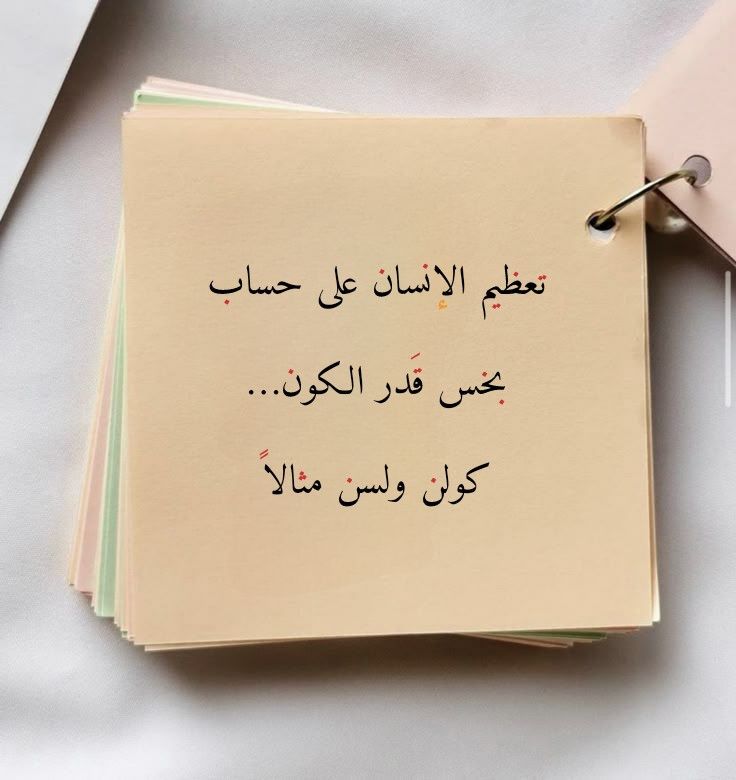 تعظيم الإنسان على حساب
بخس قَدر الكون...
كولن ولسن مثالاً